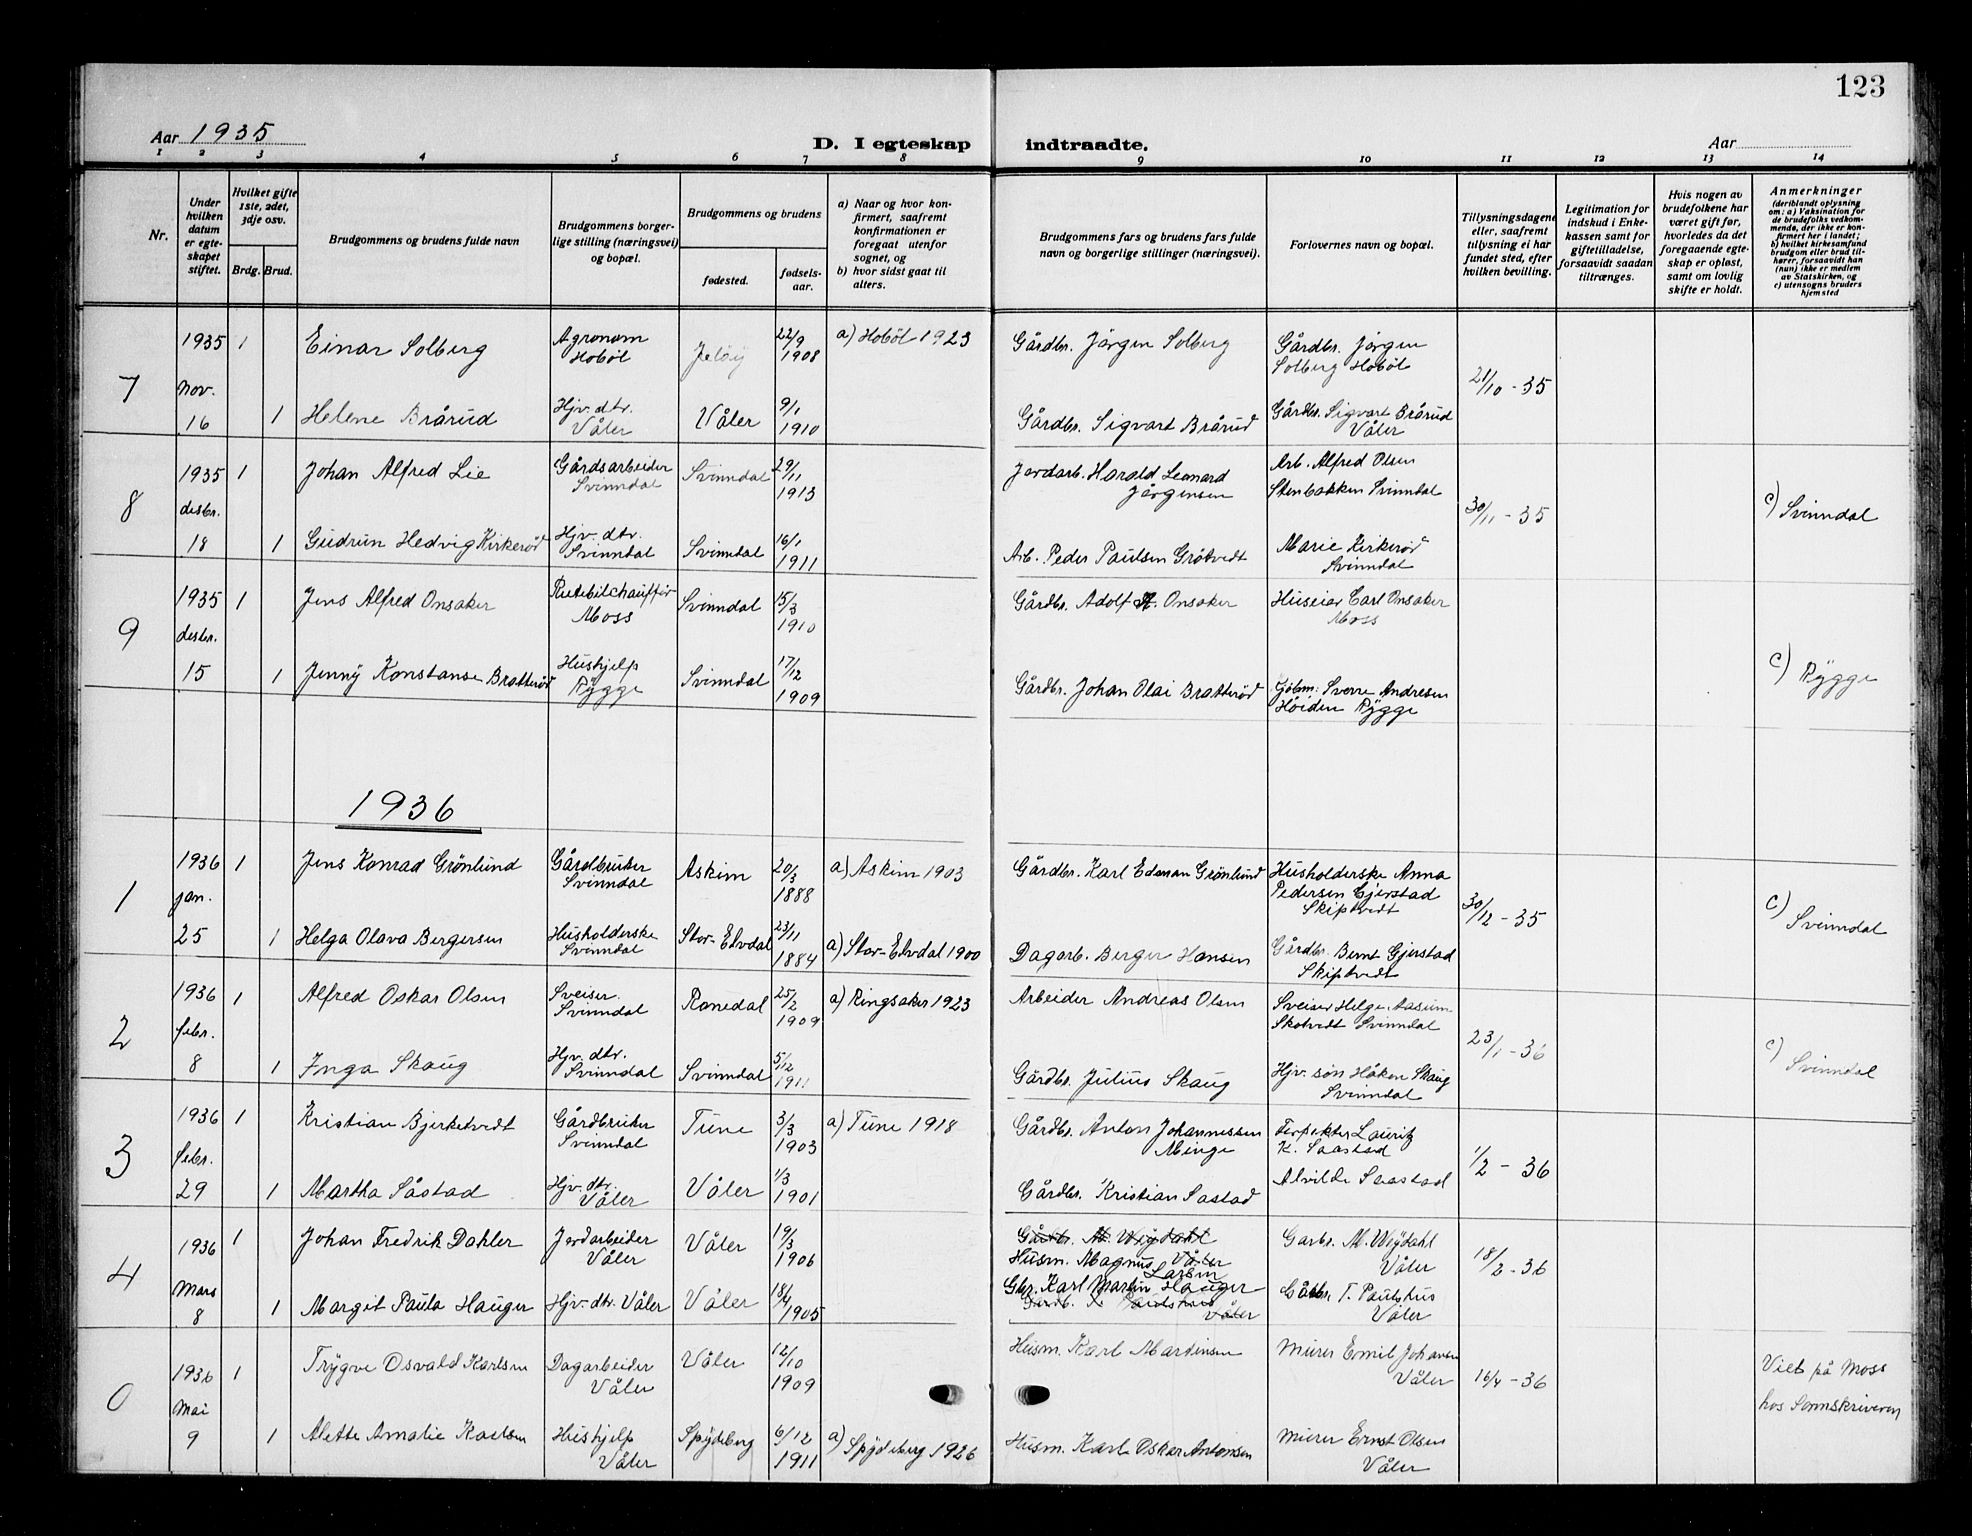 123
Aar 1935
D. I egteskap indtraadte.
Aar
1 2 3 4 5 6 7 8 9 10 11 12 13 14
Nr.
Under
hvilken
datum
er egte-
skapet
stiftet.
Hvilket gifte
1ste, 2det,
3dje osv.
Brdg. Brud.
Brudgommens og brudens fulde navn
Brudgommens borger-
lige stilling (næringsvei)
og bopæl.
Brudgommens og brudens
fødested.
fødsels-
aar.
a) Naar og hvor kon-
firmert, saafremt
konfirmationen er
foregaat utenfor
sognet, og
b) hvor sidst gaat til
alters.
Brudgommens fars og brudens fars fulde
navn og borgerlige stillinger (næringsvei).
Forlovernes navn og bopæl.
Tillysningsdagene
eller, saafremt
tillysning ei har
fundet sted, efter
hvilken bevilling.
Legitimation for
indskud i Enke-
kassen samt for
giftetilladelse,
forsaavidt saadan
tiltrænges.
Hvis nogen av
brudefolkene har
været gift før,
hvorledes da det
foregaaende egte-
skap er opløst,
samt om lovlig
skifte er holdt.
Anmerkninger
(deriblandt oplysning
om: a) Vaksination for
de brudefolks vedkom-
mende, der ikke er kon-
firmert her i landet;
b) hvilket kirkesamfund
brudgom eller brud til-
hører, forsaavidt han
(hun) ikke er medlem
av Statskirken, og
c) utensogns bruders
hjemsted
7
1935
nov.
16
1
Einar Solberg
Agronom
Hobøl
Jeløy
22/9
1908
a) Hobøl 1923
Gårdbr. Jørgen Solberg
Gårdbr. Jørgen
Solberg Hobøl
21/10 - 35
1
Helene Brårud
Hjv. dtr.
Våler
Våler
9/1
1910
Gårdbr. Sigvart Brårud
Gårdbr. Sigvart Brårud
Våler
8
1935
desbr.
18
1
Johan Alfred Lie
Gårdsarbeider
Svinndal
Svinndal
29/11
1913
Jordarb. Harald Leonard
Jørgensen
Arb. Alfred Olsen
Stenbakken Svinndal
30/11 - 35
c) Svinndal
1
Gudrun Hedvig Kirkerød
Hjv. dtr.
Svinndal
Svinndal
16/1
1911
Arb. Peder Paulsen Grøtvedt
Marie Kirkerød
Svinndal
9
1935
desbr.
15
1
Jens Alfred Onsaker
Rutebilchauffør
Moss
Svinndal
15/3
1910
Gårdbr. Adolf A. Onsaker
Huseier Carl Onsaker
Moss
c) Rygge
1
Jenny Konstanse Bratterød
Hushjelp
Rygge
Svinndal
17/12
1909
Gårdbr. Johan Olai Bratterød
Sverre Andresen
Høiden Rygge
1936
1
1936
jan.
25
1
Jens Konrad Grönlund
Gårdbruker
Svinndal
Askim
20/3
1888
a) Askim 1903
Gårdbr. Karl Edman Grönlund
Husholderske Anna
Pedersen Gjerstad
Skiptvedt
30/12 - 35
c) Svinndal
1
Helga Olava Bergersen
Husholderske
Svinndal
Stor-Elvdal
23/11
1884
a) Stor-Elvdal 1900
Dagarb. Berger Hansen
Gårdbr. Bernt Gjerstad
Skiptvedt
2
1936
febr.
8
1
Alfred Oskar Olsen
Sveiser
Svinndal
Romedal
25/2
1909
a) Ringsaker 1923
Arbeider Andreas Olsen
Sveiser Helge Aasum
Skotvedt Svinndal
23/1 - 36
c) Svinndal
1
Inga Skaug
Hjv. dtr.
Svinndal
Svinndal
5/12
1911
Gårdbr. Julius Skaug
Hjv. søn Håken Skaug
Svinndal
3
1936
febr.
29
1
Kristian Bjerketvedt
Gårdbruker
Svinndal
Tune
3/3
1903
a) Tune 1918
Gårdbr. Anton Johannessen
Minge
Lauritz
K. Saastad
1/2 - 36
1
Martha Såstad
Hjv. dtr.
Våler
Våler
1/3
1901
Gårdbr. Kristian Sastad
Alvilde Saastad
4
1936
Mars
8
1
Johan Fredrik Dahler
Jordarbeider
Våler
Våler
19/3
1906
Gårdbr. M. Wiydahl
Husm. Magnus Våler
Larsen
Garbr. M. Wiydahl
Våler
18/2 - 36
1
Margit Paula Hauger
Hjv. dtr. Våler
Våler
18/4
1905
Gbr. Karl Martin Hauger
Våler
T. Paulshus
Våler
0
1936
Mai
9
1
Trygve Osvald Karlsen
Dagarbeider
Våler
Våler
12/10
1909
Husm. Karl Martinsen
Murer Emil Johansen
Våler
16/4 - 36
Viet på Moss
hos Sorenskriveren
1
Alette Amalie Karlsen
Hushjelp
Våler
Spydeberg
6/12
1911
a) Spydeberg 1926
Husm. Karl Oskar Antonsen
Murer Ernst Olsen
Våler